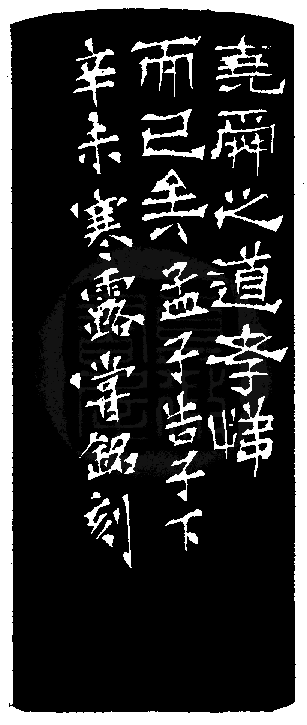 堯舜之道孝悌
而已矣孟子告子下
辛未寒露銘刻